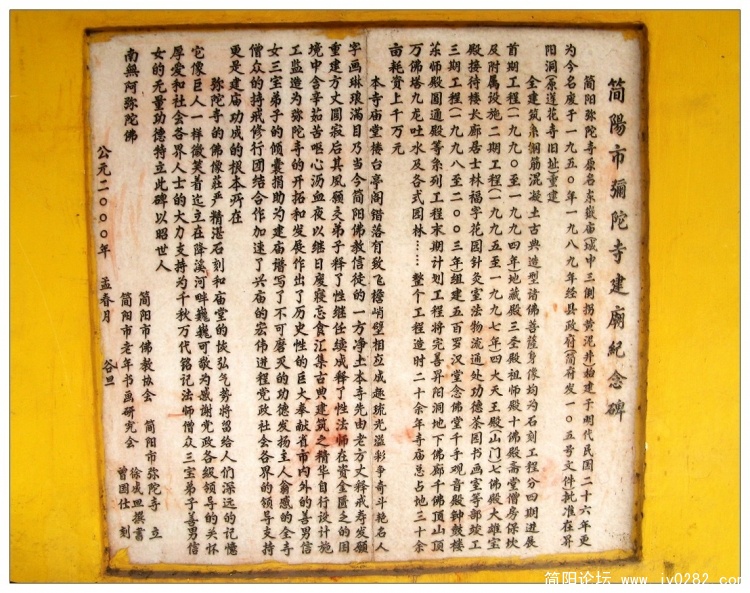 简陽市彌陀寺建廟紀念碑
简阳弥陀寺原名东嶽庙(城中三倒拐黄泥井)始建于明代民国二十六年更
为今名废于一九五0年一九八九年经县政府简府发一0五号文件批准在昇
阳洞(原莲花寺旧址)重建
全建筑系钢筋混凝土古典造型诸佛菩薩身像均为石刻工程分四期进展
首期工程(一九九0至一九九四年)地藏殿三圣殿祖师殿十佛殿斋堂僧房保坎
及附属设施二期工程(一九九五至一九九七年)四大天王殿(山门)七佛殿大雄宝
殿接待楼长廊居士林福字花园针灸室法物流通处功德茶园书画室等部竣工
三期工程(一九九八至二00三年)组建五百罗汉堂念佛堂千手观音殿钟鼓楼
药师殿圆通殿等系列工程末期计划工程将完善昇阳洞地下佛廊千佛顶山顶
万佛塔九龙吐水及各式园林……整个工程造时二十余年寺庙总占地三十余
亩耗资上千万元
本寺庙堂楼台亭阁错落有致飞檐峭壁相应成趣琉光溢彩争奇斗艳名人
字画琳琅满目乃当今简阳佛教信徒的一方净土本寺先由老方丈释戒寿发願
重建方丈圆寂后其夙願爻弟子释了性继任续成释了性法师在资金匮乏之的困
境中含辛茹苦呕心沥血夜以继日废寝忘食汇集古典建筑之精华自行设计施
工监造为弥陀寺的开拓和发展作出了历史性的巨大奉献省市内外的善男信
女三宝弟子的倾囊捐助为建庙谱写了不可磨灭的功德发扬主人翁感的全寺
僧众的持戒修行团结合作加速了兴庙的宏伟进程党政社会各界的领导支持
更是建庙功成的根本所在
弥陀寺的佛像莊严精湛石刻和庙堂的恢弘气势将留给人们深远的记憶
它像巨人一样微笑着迄立在降溪河畔巍巍可敬为感谢党政各級领导的关怀
厚爱和社会各界人士的大力支持为千秋万代铭记法师僧众三宝弟子善男信
女的无量功德特立此碑以昭世人
南無阿弥陀佛
简阳市佛教协会 简阳市弥陀寺 立
简阳市老年书画研究会 徐成旦撰書
曾国仕 刻
公元二000年 孟春月 谷旦
简阳论坛 www.jy0282.com